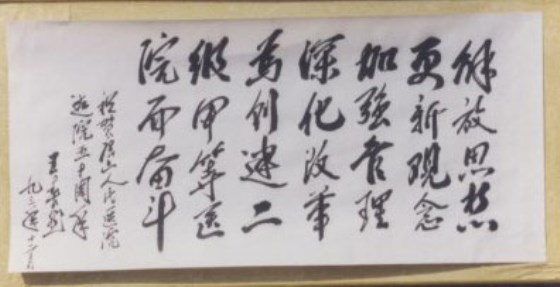 解放思想
更新观念
加強管理
深化改革
為创建二
级甲等医
院而奋斗
祝贺 山人民医院
建院五十周年
九三年十二月